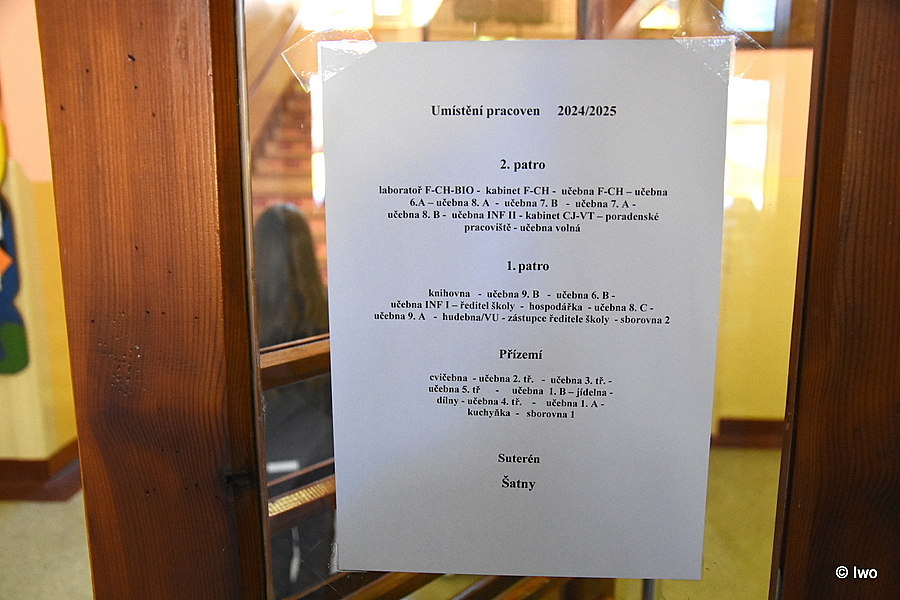 Umístění pracoven 2024/2025
2. patro
laboratoř F-CH-BIO - kabinet F-CH - učebna F-CH – učebna
6.A – učebna 8. A - učebna 7. B - učebna 7. A -
učebna 8. B - učebna INF II - kabinet CJ-VT – poradenské
pracoviště - učebna volná
1. patro
knihovna - učebna 9. B - učebna 6. B -
učebna INF I – ředitel školy - hospodářka - učebna 8. C -
učebna 9. A - hudebna/VU - zástupce ředitele školy - sborovna 2
Přízemí
cvičebna - učebna 2. tř. - učebna 3. tř. -
učebna 5. tř - učebna 1. B – jídelna -
dílny - učebna 4. tř. - učebna 1. A -
kuchyňka - sborovna 1
Suterén
Šatny
© Iwo